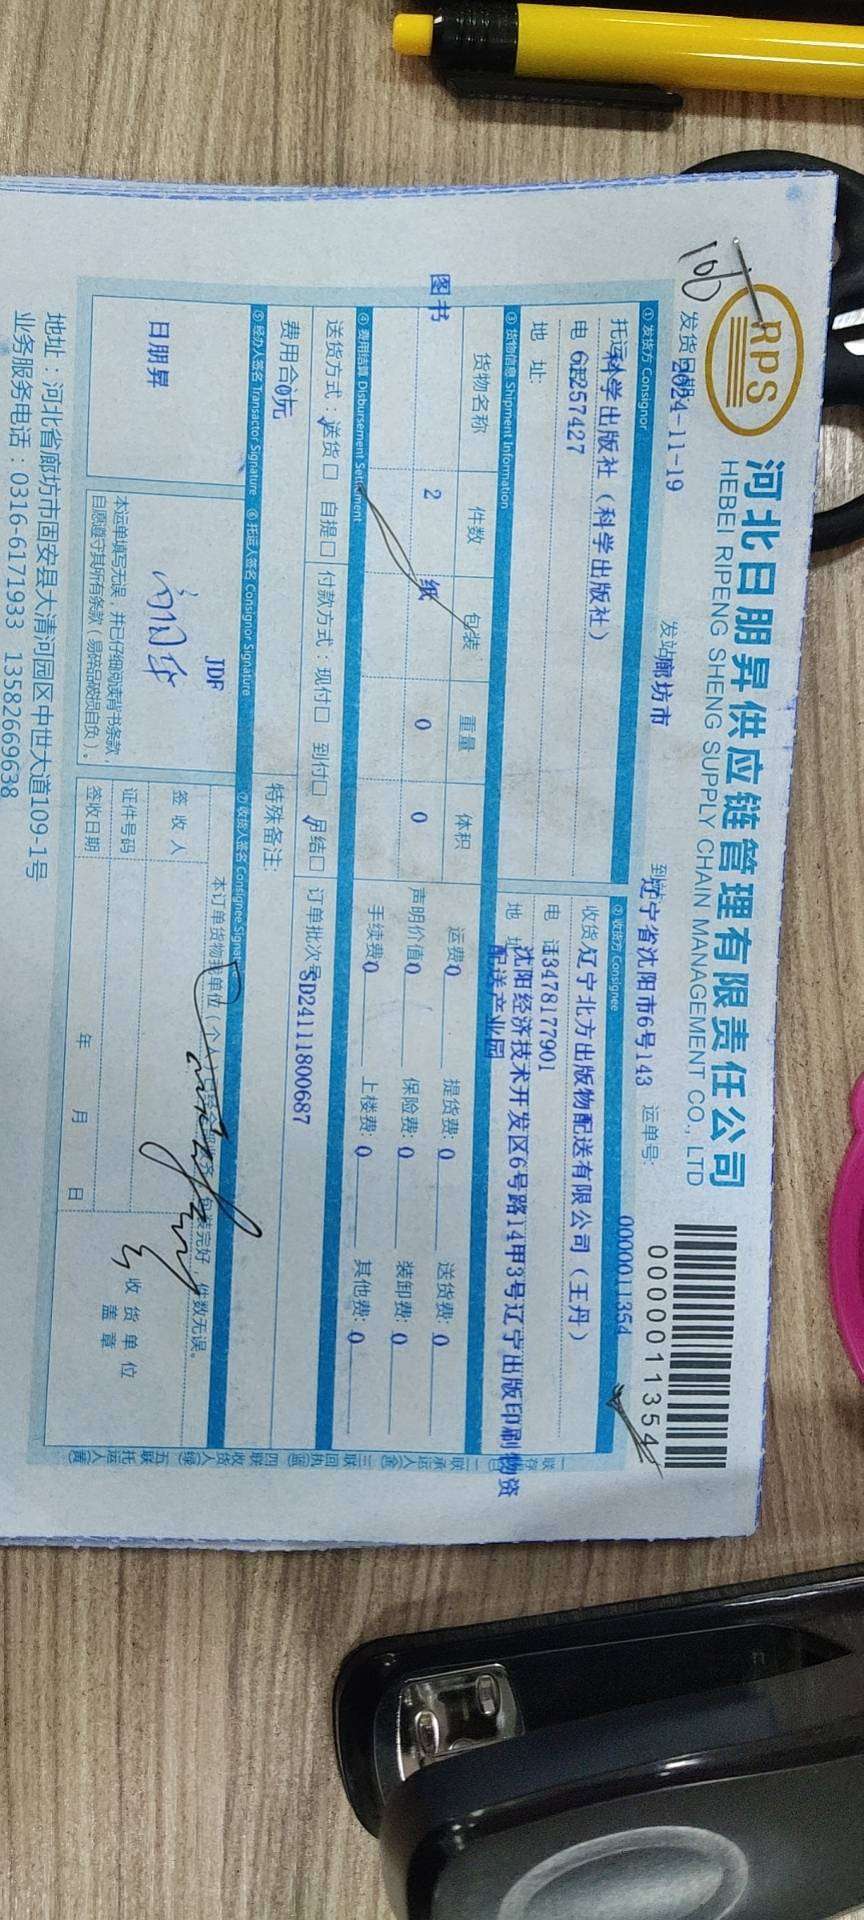 RPS
河北日朋昇供应链管理有限责任公司
HEBEI RIPENG SHENG SUPPLY CHAIN MANAGEMENT CO., LTD
0000011354
发货日期 2024-11-19
发站 廊坊市
到站 辽宁省沈阳市6号143
运单号: 0000011354
① 发货方 Consignor
② 收货方 Consignee
托运 科学出版社（科学出版社）
收货 辽宁北方出版物配送有限公司（王丹）
电 话 57427
电 话 13478177901
地 址:
地 址 沈阳经济技术开发区6号路14甲3号辽宁出版印刷物资
配送产业园
③ 货物信息 Shipment Information
货物名称 件数 包装 重量 体积
图书 2 纸 0 0
运费 0 提货费: 0 送货费: 0
声明价值 0 保险费: 0 装卸费: 0
手续费 0 上楼费: 0 其他费: 0
④ 费用结算 Disbursement Settlement
送货方式: 送货□ 自提□ 付款方式: 现付□ 到付□ 月结□
订单批次号 SD24111800687
费用合 0元
特殊备注:
⑤ 经办人签名 Transactor Signature
⑥ 托运人签名 Consignor Signature
⑦ 收货人签名 Consignee Signature
日朋昇
JDF
本运单填写无误，并已仔细阅读背书条款，
自愿遵守其所有条款（易碎品破损自负）。
本订单货物我单位（个人） 包装完好，件数无误。
签收人
证件号码
签收日期 年 月 日
收货单位
盖章
地址：河北省廊坊市固安县大清河园区中世大道109-1号
业务服务电话：0316-6171933 13582669638